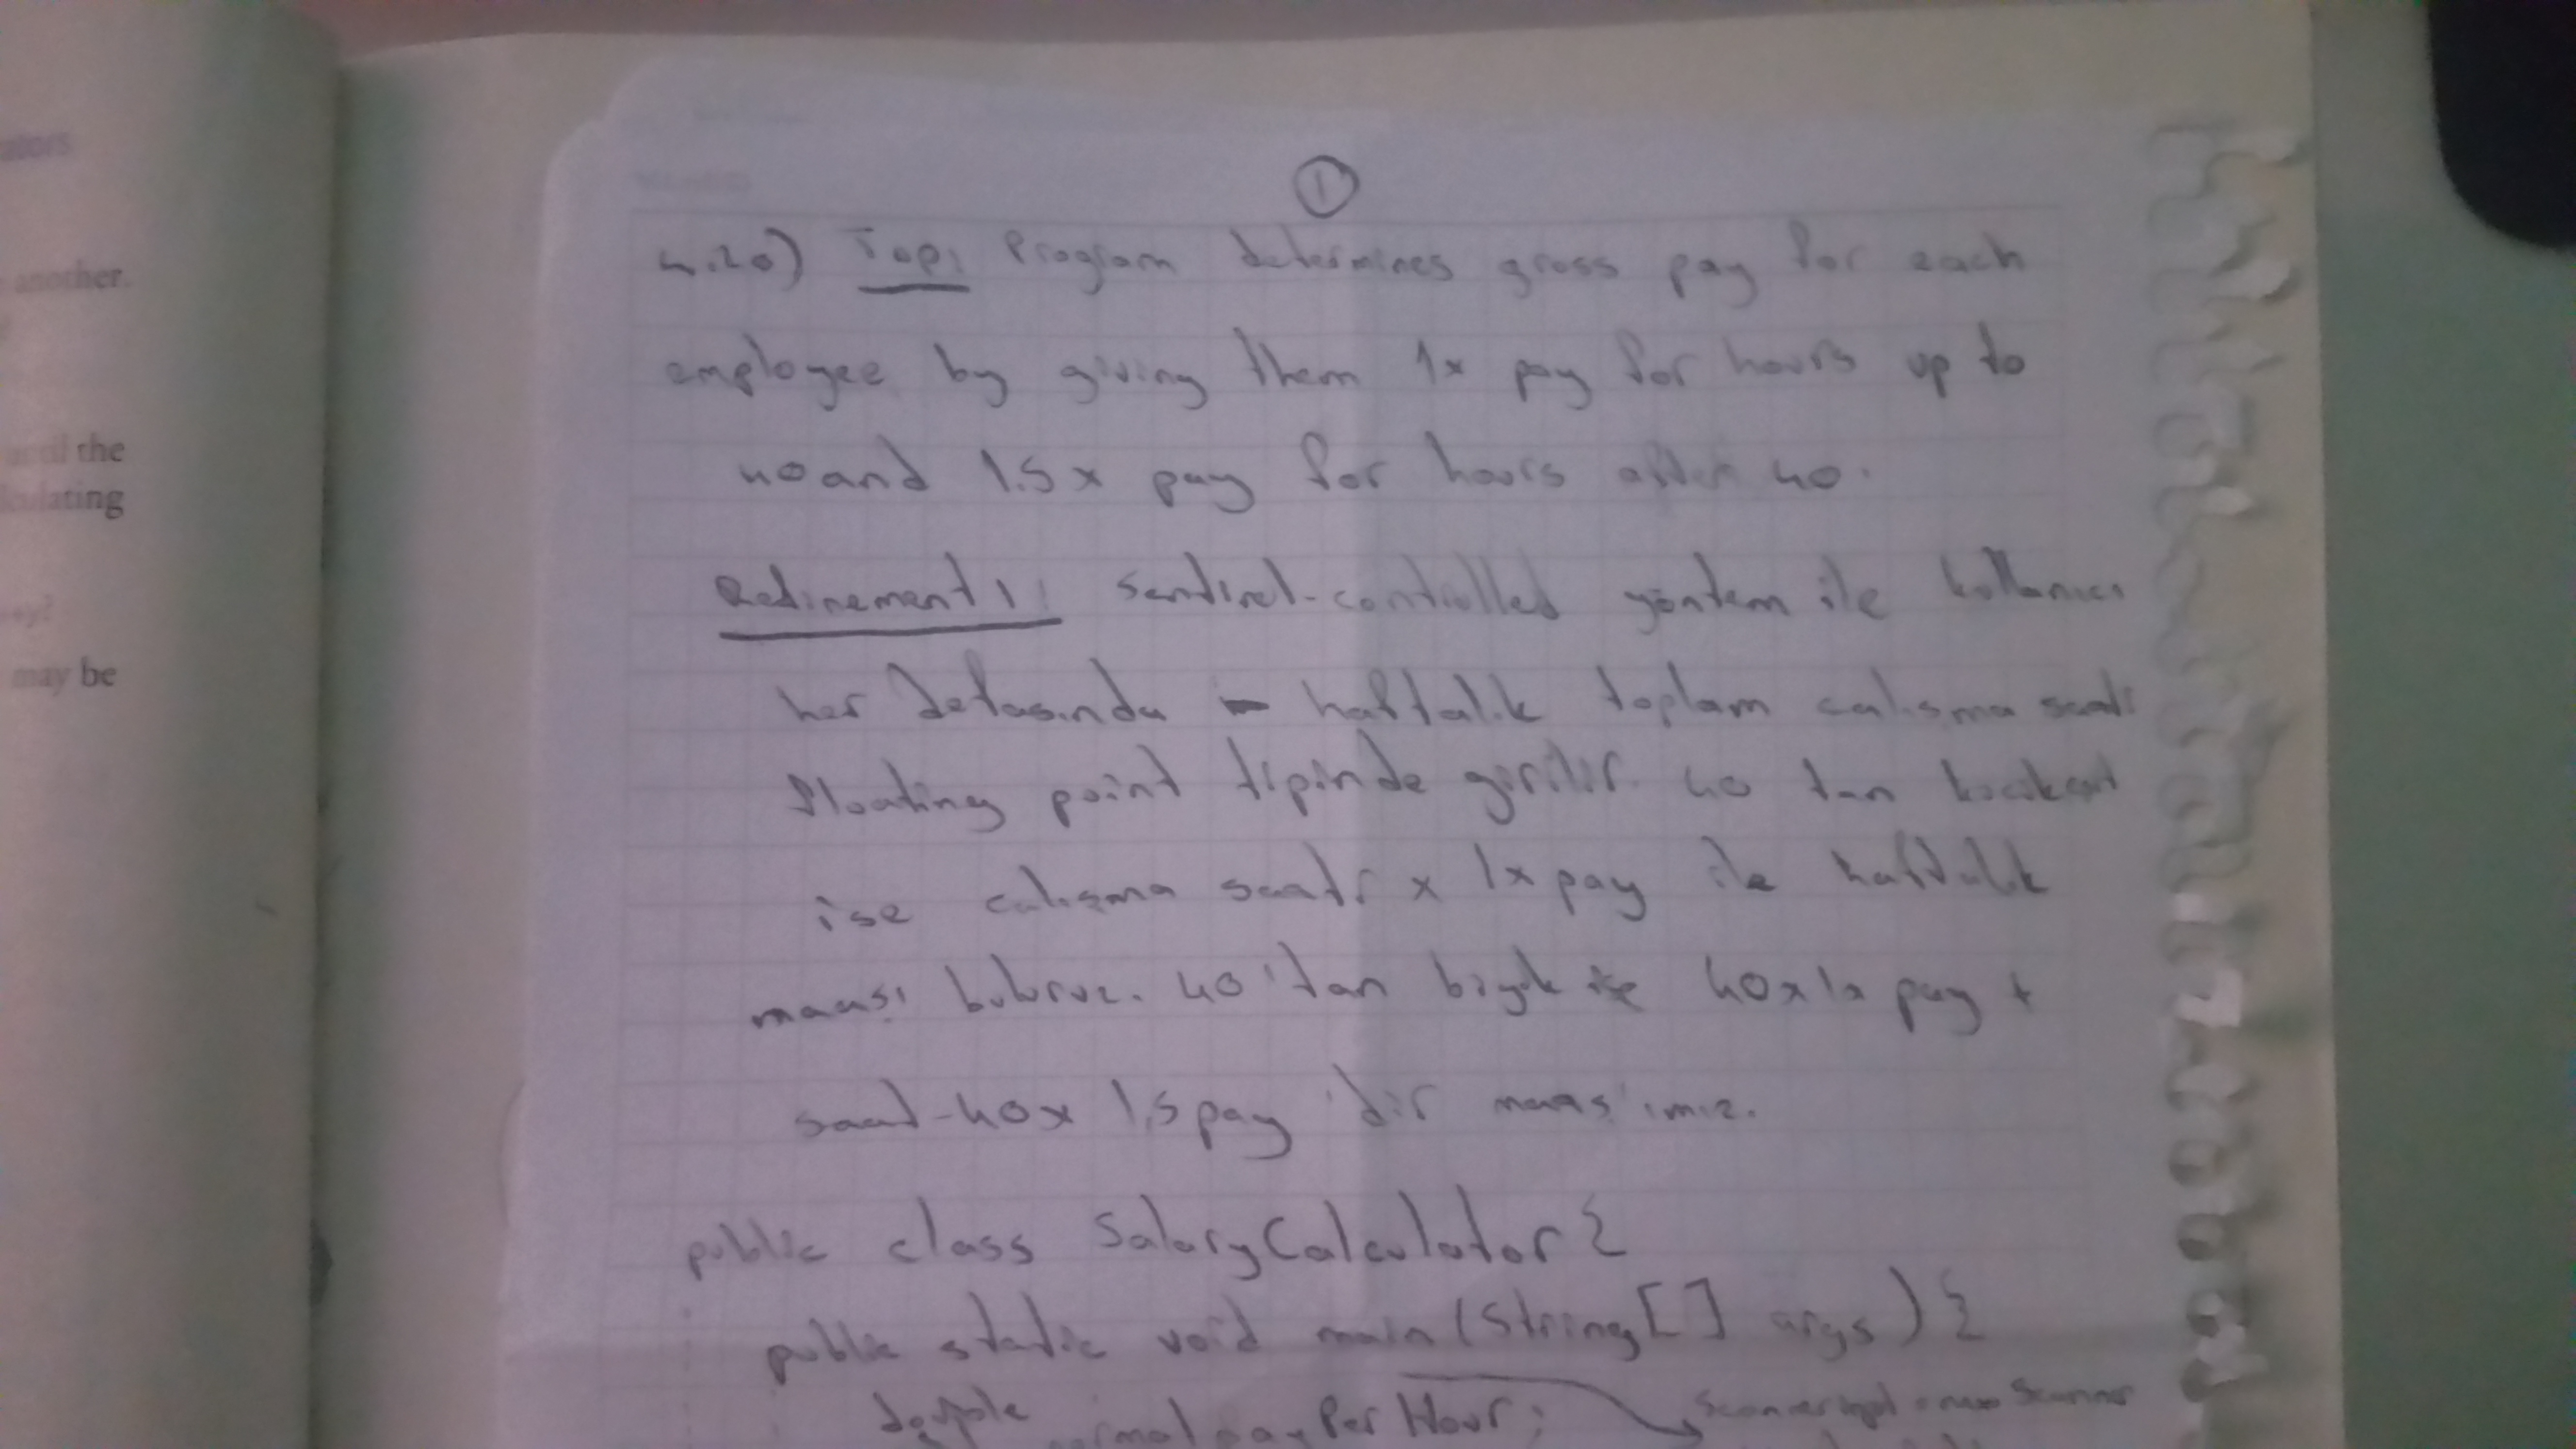 ators
another.
until the
lculating
may be
1
4.20) Top: Program determines gross pay for each
employee by giving them 1x pay for hours up to
40 and 1.5x pay for hours after 40.
Refinement 1: sentinel-controlled yöntem ile kullanıcı
her defasında haftalık toplam calısma saati
floating point tipinde girilir. 40 tan
ise calışma saati x 1x pay ile haftalık
maaşı buluruz. 40'tan büyük ise 40x1x pay +
saat-40x 1,5 pay 'dir maaş'ımız.
public class SalaryCalculator {
public static void main (String[] args) {
double normalpayPerHour;
Scanner input = new Scanner